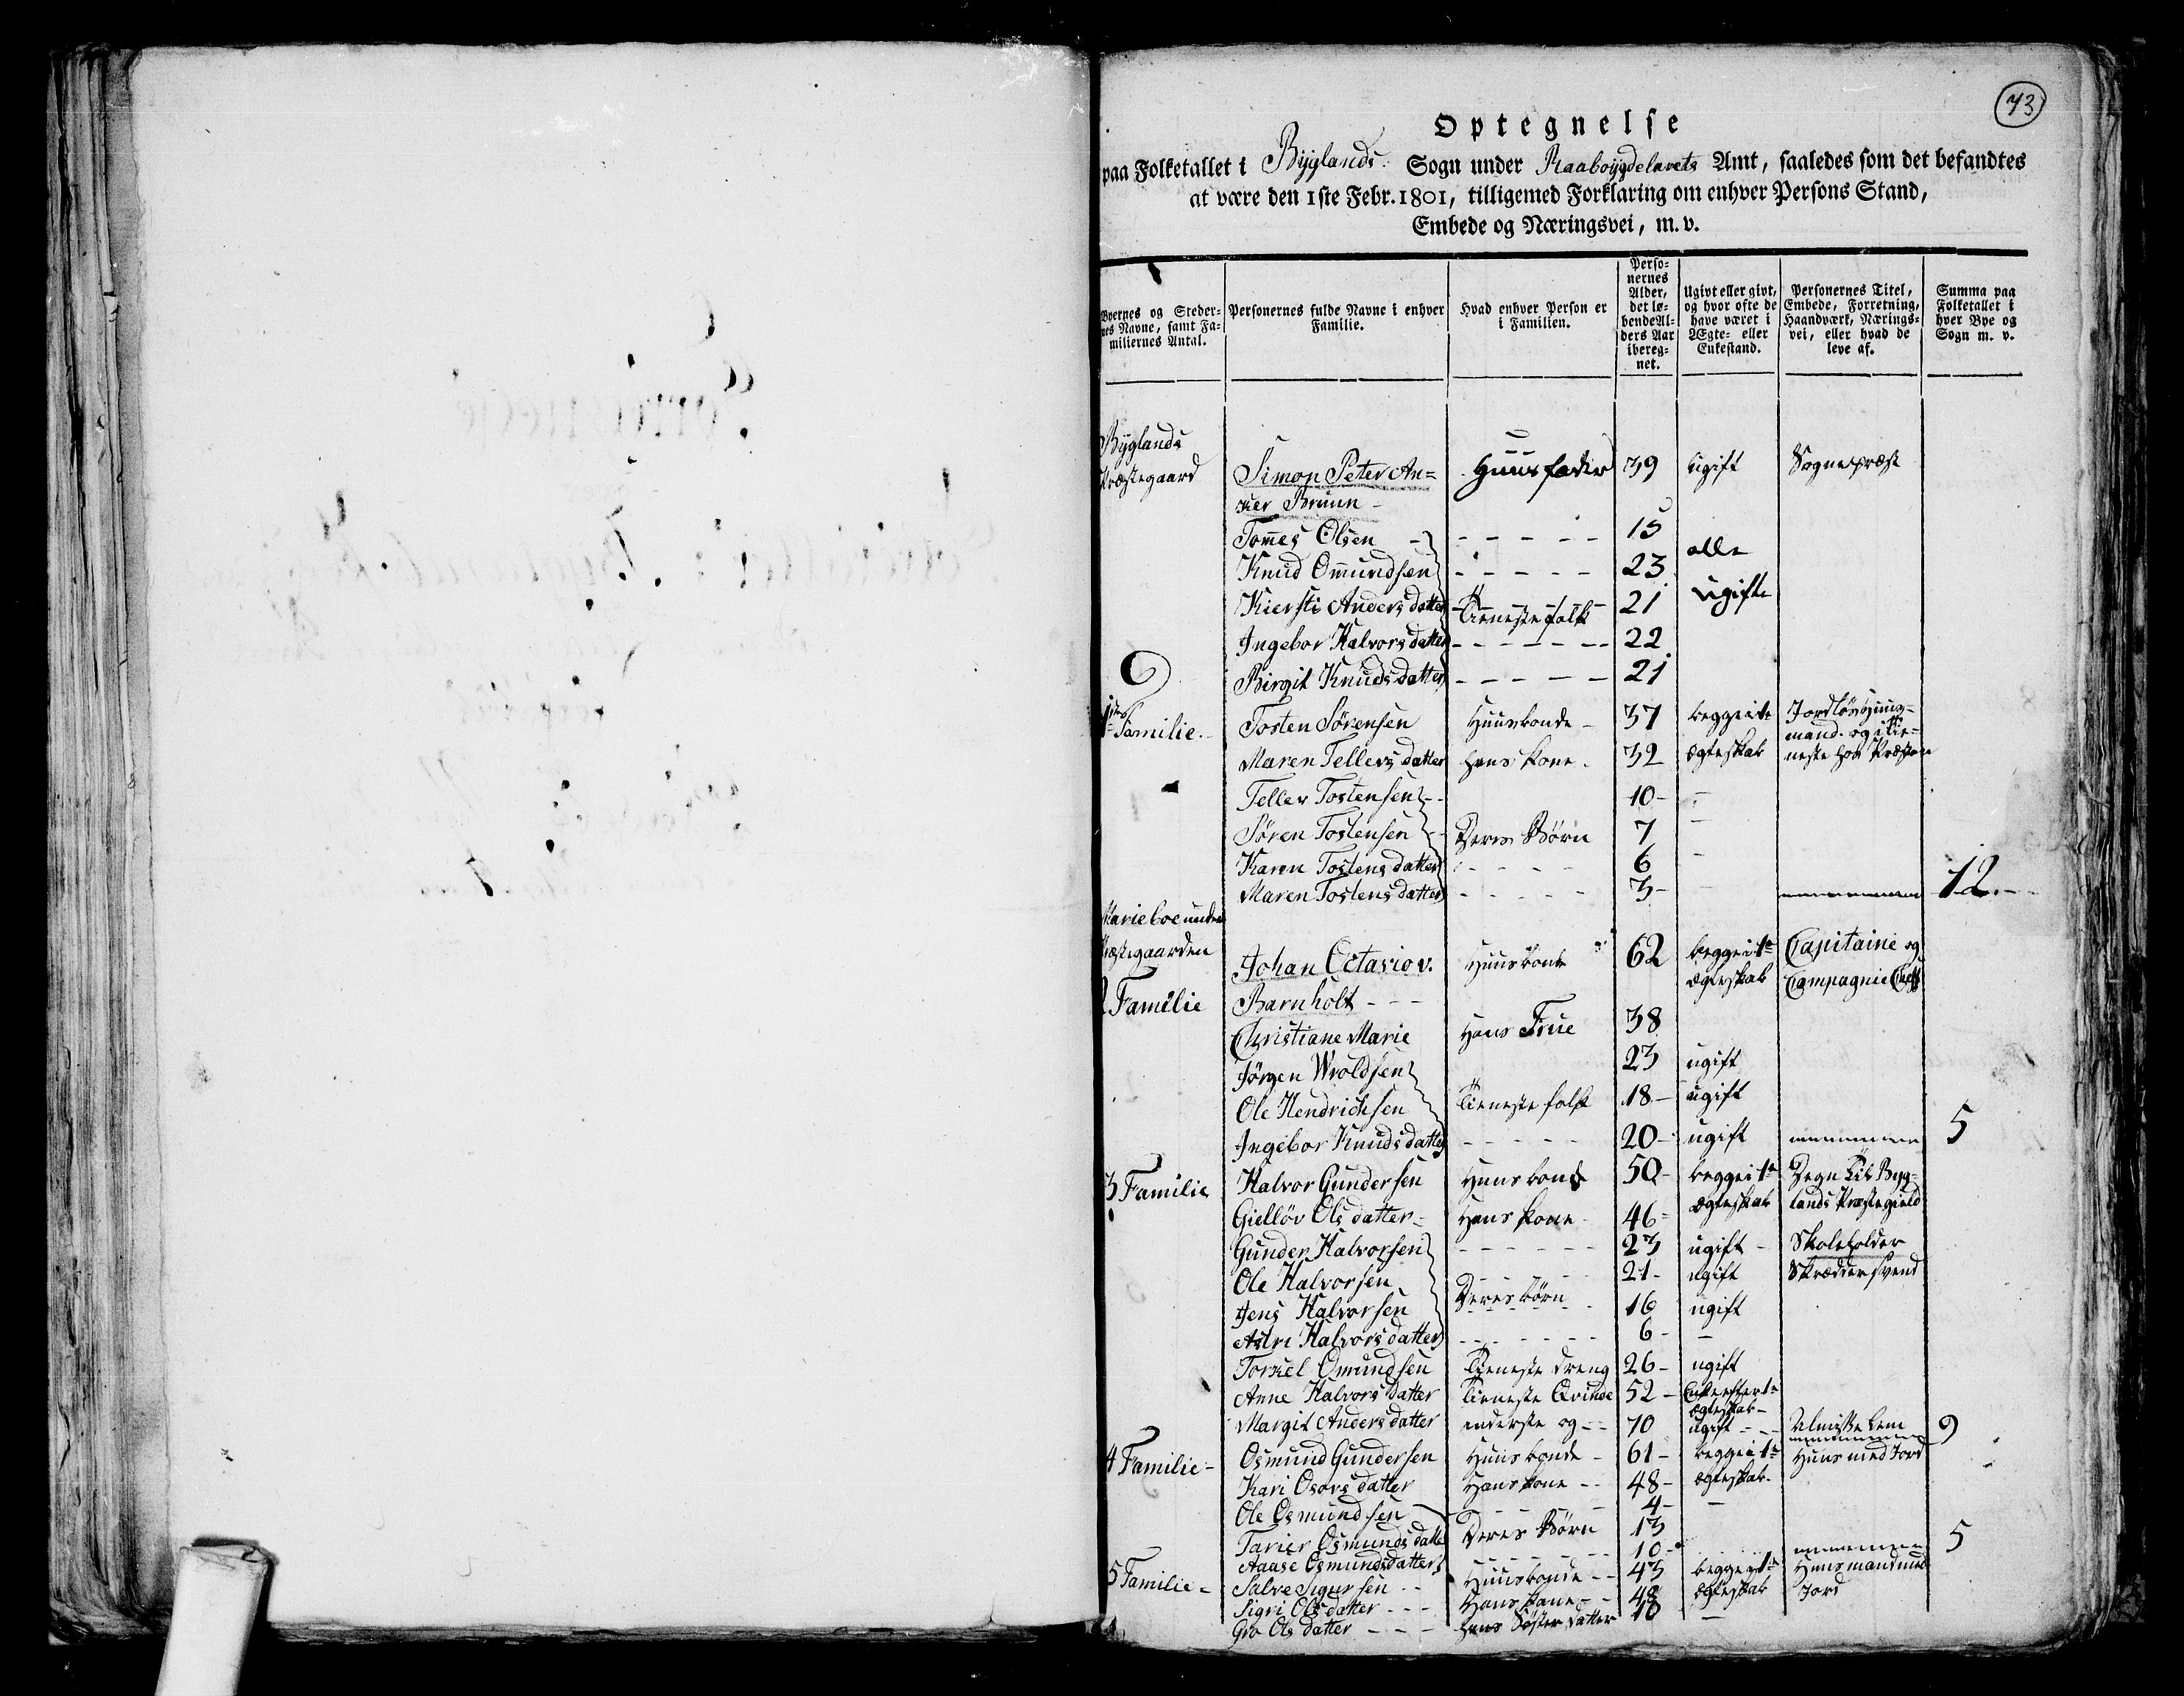 73
Optegnelse
paa Folketallet i Byglands Sogn under Raabøygdelavets Amt, saaledes som det befandtes
at være den 1ste Febr. 1801, tilligemed Forklaring om enhver Persons Stand,
Embede og Næringsvei, m. v.
Byernes og Steder-
nes Navne, samt Fa-
miliernes Antal.
Personernes fulde Navne i enhver
Familie.
Hvad enhver Person er
i Familien.
Perso-
nernes
Alder,
det lø-
bende Al-
ders Aar
ibereg-
net.
Ugivt eller givt,
og hvor ofte de
have været i
Ægte- eller
Enkestand.
Personernes Titel,
Embede, Forretning,
Haandværk, Nærings-
vei, eller hvad de
leve af.
Summa paa
Folketallet i
hver Bye og
Sogn m. v.
Byglands
Præstegaard Simon Peter An- Huusfader 39 ugift Sognepræst
ker Bruun -
Tomes Olsen - - - - - - 15
Knud Omundsen - - - - - 23 alle
Kiersti Anders datter Tieneste folk 21 ugifte
Ingebor Halvors datter - - - - - 22
6 Birgit Knuds datter - - - - - 21
1ste Familie. Tosten Sørensen Huusbonde - 37 begge i 1te Jordløs Huus-
mand og i Tie-
Maren Tellers datter hans Kone - 32 Ægteskab neste hos Præsten
Teller Tostensen - 10 - -
Søren Tostensen Deres Børn 7 -
Karen Tostens datter - - - - 6 -
Maren Tostens datter - - - - 3 - - 12. -
Marieboe under
Præstegaarden Johan Octavio v. Huusbonde 62 begge i 1te Capitaine og
2 Familie Barnholt - - - Ægteskab Compagnie Cheff
Christiane Marie Hans Frue 38
Jørgen Wroldsen 23 ugift
Ole Hendrichsen Tieneste folk 18 - ugift
Ingebor Knuds datter - - - - 20 - ugift 5
3 Familie Halvor Gundersen Huusbonde 50 - begge i 1te Degn til Byg-
Gielløv Ols datter - Hans Kone - 46 - Ægteskab lands Præstegield
Gunder Halvorsen - - - - - 23 ugift - Skoleholder
Ole Halvorsen 21 - ugift Skreddersvend
Jens Halvorsen Deres børn 16 ugift
Astri Halvors datter - - - - - 6 - -
Torkel Omundsen Tieneste Dreng 26 - ugift
Anne Halvors datter Tieneste Qvinde 52 - Enke efter 1te
Ægteskab -
Margit Anders datter enderste og - - 70 ugift - - - Almisse Lem 9
4 Familie - Osmund Gundersen Huusbonde - 61 - begge i 1te Huus med Jord
Kari Osors datter Hans Kone - - 48 - Ægteskab -
Ole Osmundsen 4 - -
Tarier Osmunds datter Deres Børn 13
Aaase Osmundsdatter 10 - 5
5 Familie - Salve Sigursen - - Huusbonde - - 43 begge i 1te Huusmand med
Sigri Ols datter - - - Hans Kone - - 48 Ægteskab Jord
Gro Ols datter - - - hans Søster datter 10 -